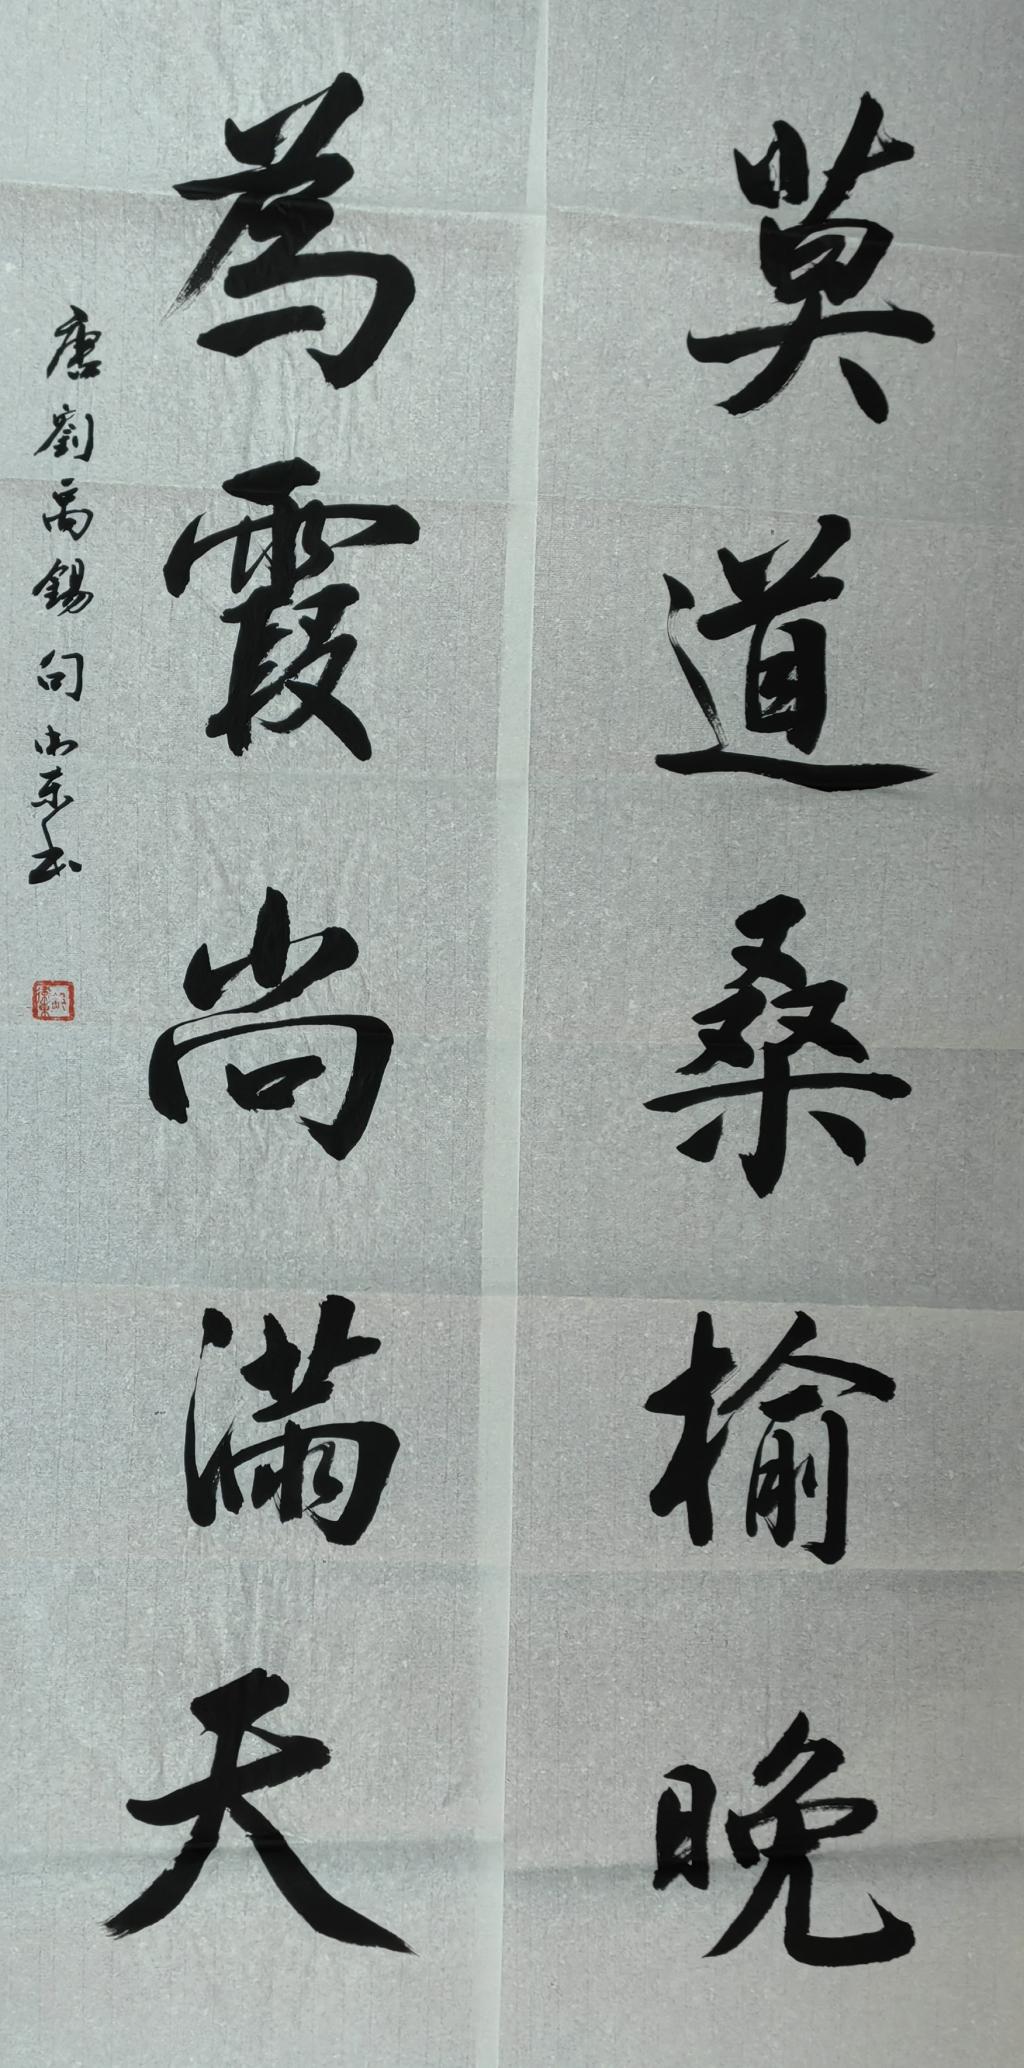 莫道桑榆晚
為霞尚滿天
唐劉禹錫句